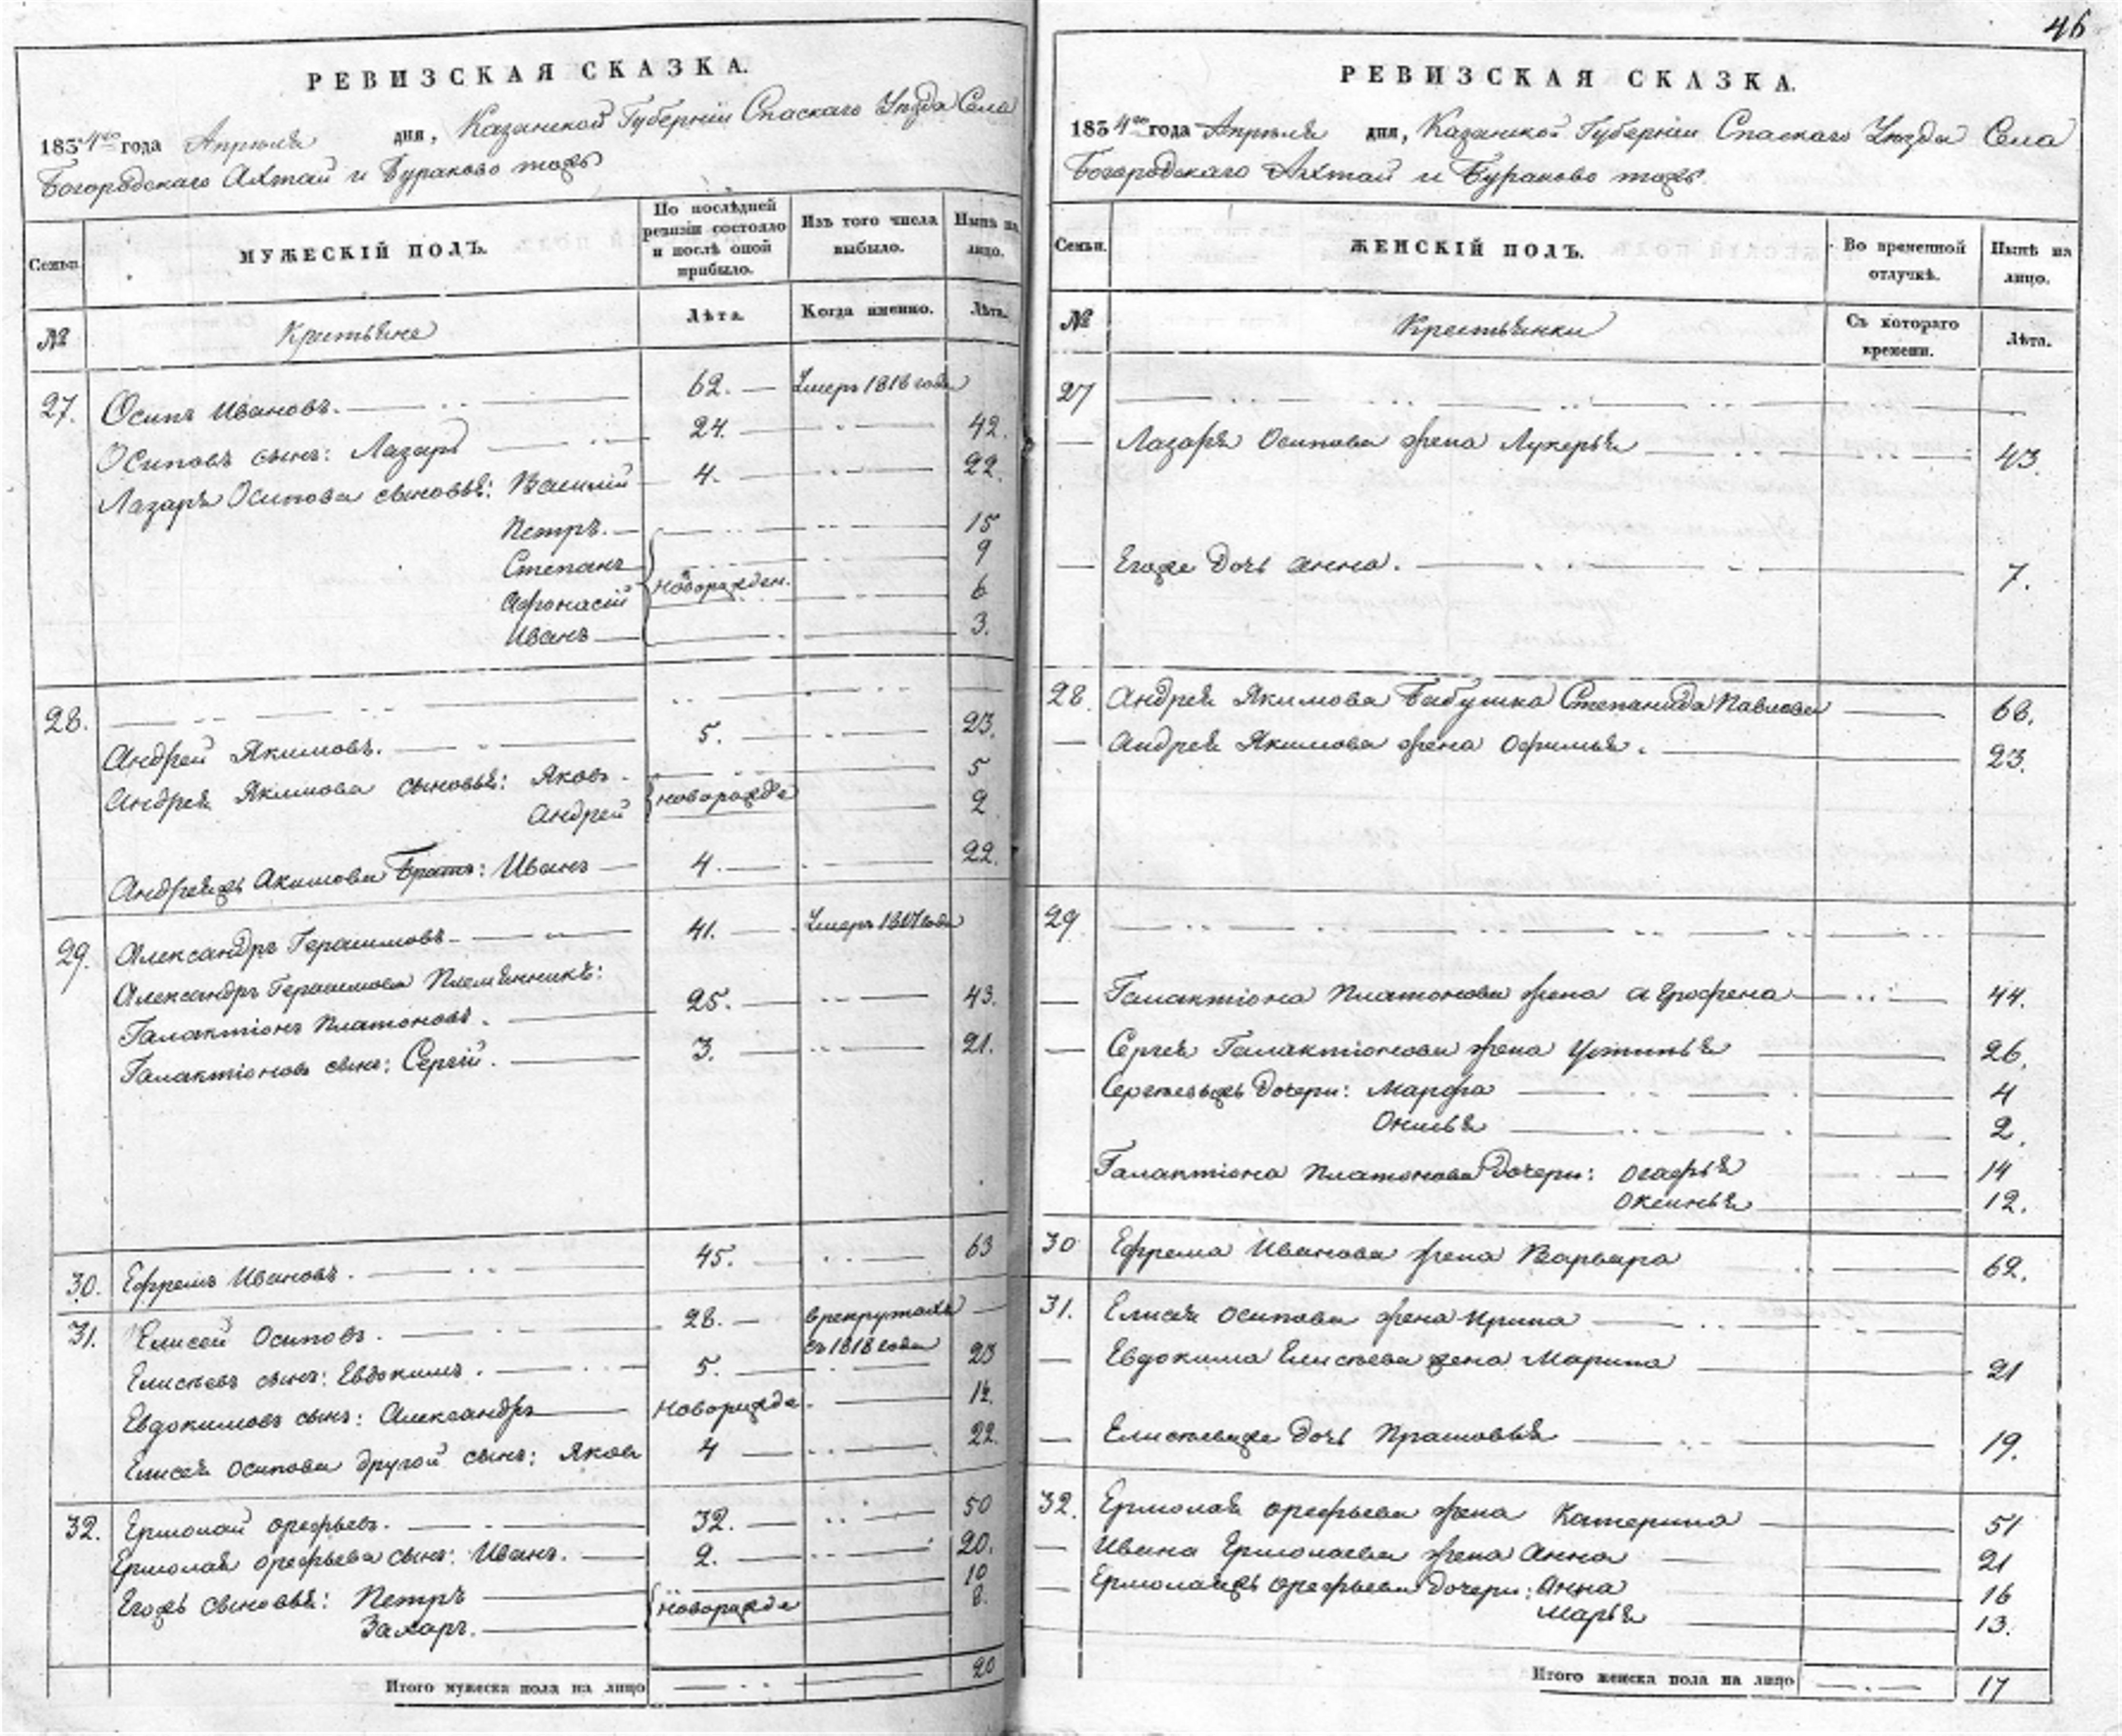 46
РЕВИЗСКАЯ СКАЗКА.
1834го года Апреля дня, Казанской Губерніи Спаскаго Уезда Села
Богородскаго Ахтай и Бураково тожъ
Семьи. МУЖЕСКІЙ ПОЛЪ. По послѣдней ревизіи состояло и послѣ оной прибыло. Изъ того числа выбыло. Нынѣ на лицо.
№ Крестьяне Лѣта. Когда именно. Лѣта.
27. Осипъ Ивановъ. 62. Умеръ 1816 года
Осиповъ сынъ: Лазарь 24. 42.
Лазаря Осипова сыновья: Василий 4. 22.
Петръ. 15
Степанъ 9
Афонасій новорожден. 6
Иванъ 3.
28.
Андрей Якимовъ. 5. 23.
Андрея Якимова сыновья: Яковъ. 5
Андрей новорожде 2
Андреяжъ Акимова Братъ: Иванъ 4. 22.
29. Александръ Герасимовъ 41. Умеръ года
Александръ Герасимова Племянникъ:
Галактіонъ Платоновъ. 25. 43.
Галактіоновъ сынъ: Сергій. 3. 21.
30. Ефремъ Ивановъ. 45. 63
31. Елисей Осиповъ. 28. в рекрутахъ
съ 1818 года
Елисеевъ сынъ: Евдокимъ. 5. 23
Евдокимовъ сынъ: Александръ Новорожде.
Елисея Осипова другой сынъ: Яковъ 4 22.
32. Ермолай Орефьевъ. 32. 50
Ермолая Орефьева сынъ: Иванъ. 2. 20.
Егожъ сыновья: Петръ 10
Захаръ. новорожде 8.
Итого мужеска пола на лицо 20
РЕВИЗСКАЯ СКАЗКА.
1834го года Апреля дня, Казанской Губерніи Спаскаго Уезда Села
Богородскаго Ахтай и Бураково тожъ.
Семьи. ЖЕНСКІЙ ПОЛЪ. Во временной отлучкѣ. Нынѣ на лицо.
№ Крестьянки Съ котораго времени. Лѣта.
27
Лазаря Осипова жена Лукерья 43.
Егоже дочь Анна. 7.
28. Андрея Якимова бабушка Степанида Павлова 68.
Андрея Якимова жена Офимья. 23.
29.
Галактіона Платонова жена Аграфена 44.
Сергея Галактіонова жена Устинья 26.
Сергеевыжъ дочери: Марфа 4
2.
Галактіона Платонова дочери: Огафья 14
Оксинья 12.
30 Ефрема Иванова жена Варвара 62.
31. Елисея Осипова жена Ирина
Евдокима Елисеева жена Марина 21
Елисееваже дочь Прасковья 19.
32. Ермолая Орефьева жена Катерина 51
Ивана Ермолаева жена Анна 21
Ермолаяжъ Орефьева дочери: Анна 16
Марья 13.
Итого женска пола на лицо 17